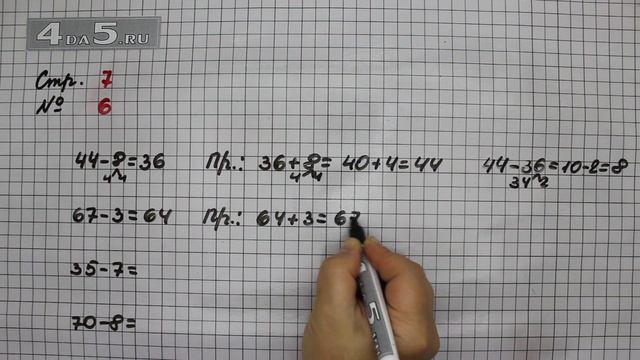 4DA5.RU
Стр. 7
№ 6
44-8=36 Пр.: 36+8=40+4=44 44-36=10-2=8
4 4 4 4 34 2
67-3=64 Пр.: 64+3=67
35-7=
70-8=
5